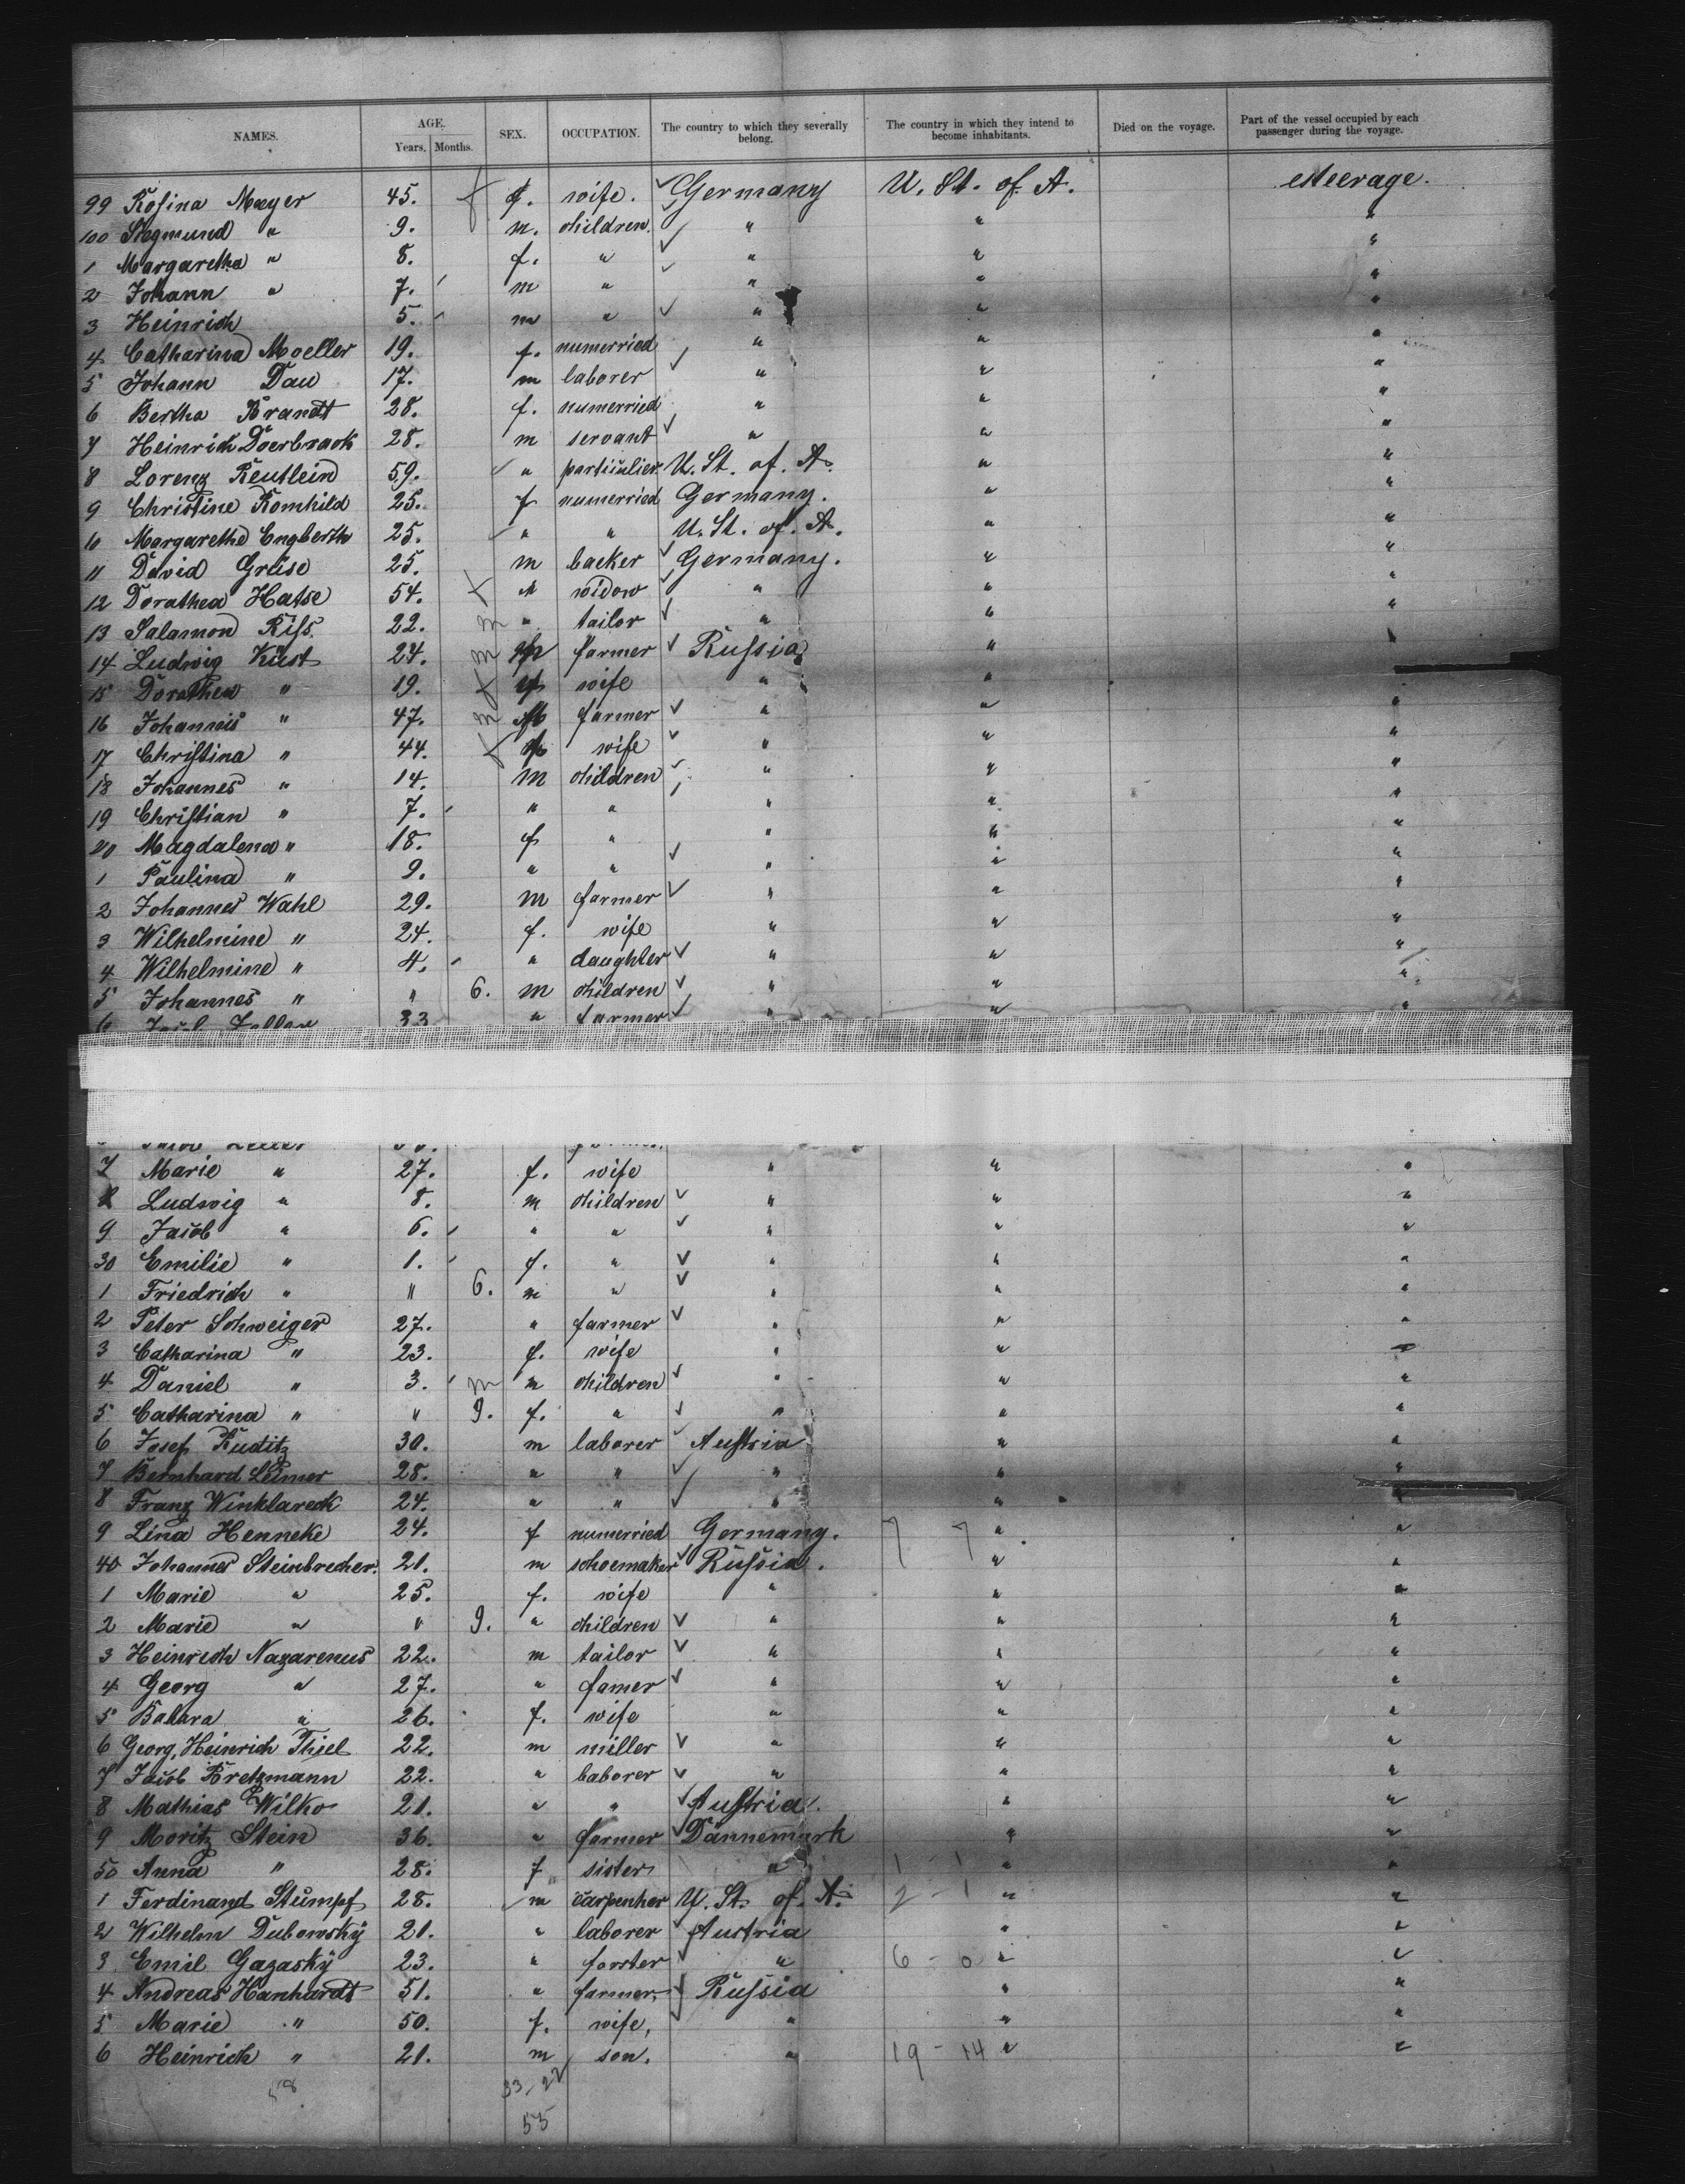 NAMES. AGE. Years. Months. SEX. OCCUPATION. The country to which they severally belong. The country in which they intend to become inhabitants. Died on the voyage. Part of the vessel occupied by each passenger during the voyage.
99 Rosina Mayer 45. f. wife. Germany U. St. of. A. steerage.
100 Siegmund " 9. m. children. " " "
1 Margaretha " 8. f. " " " "
2 Johann " 7. m " " " "
3 Heinrich 5. m " " " "
4 Catharina Moeller 19. f. numerried " " "
5 Johann Dau 17. m laborer " " "
6 Bertha Brandt 28. f. numerried " " "
7 Heinrich Doerbrack 28. m servant " " "
8 Lorenz Reutlein 59. " particulier U. St. of. A. " "
9 Christine Romhild 25. f numerried Germany. " "
10 Margarethe Engberth 25. " " U. St. of. A. " "
11 David Gruse 25. m backer Germany. " "
12 Dorathea Hatse 54. f widow " " "
13 Salamon Riss. 22. m " tailor " " "
14 Ludwig Küst 24. m farmer Russia " "
15 Dorathea " 19. f wife " " "
16 Johannis " 47. m farmer " " "
17 Christina " 44. f wife " " "
18 Johannes " 14. m children " " "
19 Christian " 7. " " " " "
20 Magdalena " 18. f " " " "
1 Paulina " 9. " " " " "
2 Johannes Wahl 29. m farmer " " "
3 Wilhelmine " 24. f. wife " " "
4 Wilhelmine " 4. " daughter " " "
5 Johannes " " 6. m children " " "
6 Jacob Zeller 33 " farmer " " "
7 Marie " 27. f. wife " " "
8 Ludwig " 8. m children " " "
9 Jacob " 6. " " " " "
30 Emilie " 1. f. " " " "
1 Friedrich " " 6. m " " " "
2 Peter Schweiger 27. " farmer " " "
3 Catharina " 23. f. wife " " "
4 Daniel " 3. m m children " " "
5 Catharina " " 9. f. " " " "
6 Josef Ruditz 30. m laborer Austria " "
7 Bernhard Leimer 28. " " " " "
8 Franz Winklareck 24. " " " " "
9 Lina Henneke 24. f numerried Germany. " "
40 Johannes Steinbrecher. 21. m schoemaker Russia. " "
1 Marie " 25. f. wife " " "
2 Marie " " 9. " children " " "
3 Heinrich Nazarenus 22. m tailor " " "
4 Georg " 27. " famer " " "
5 Babara " 26. f. wife " " "
6 Georg, Heinrich Thiel 22. m miller " " "
7 Jacob Bretzmann 22. " laborer " " "
8 Mathias Wilko 21. " " Austria. " "
9 Moritz Stein 36. " farmer Dännemark " "
50 Anna " 28. f sister " 1 - 1 " "
1 Ferdinand Stumpf 28. m carpenher U. St. of. A. 2 - 1 " "
2 Wilhelm Dubowsky 21. " laborer Austria " "
3 Emil Gazasky 23. " forster " 6 - 0 " "
4 Andreas Hanhardt 51. " farmer, Russia " "
5 Marie " 50. f. wife, " " "
6 Heinrich " 21. m son. " 19 - 14 " "
58 33, 22
55